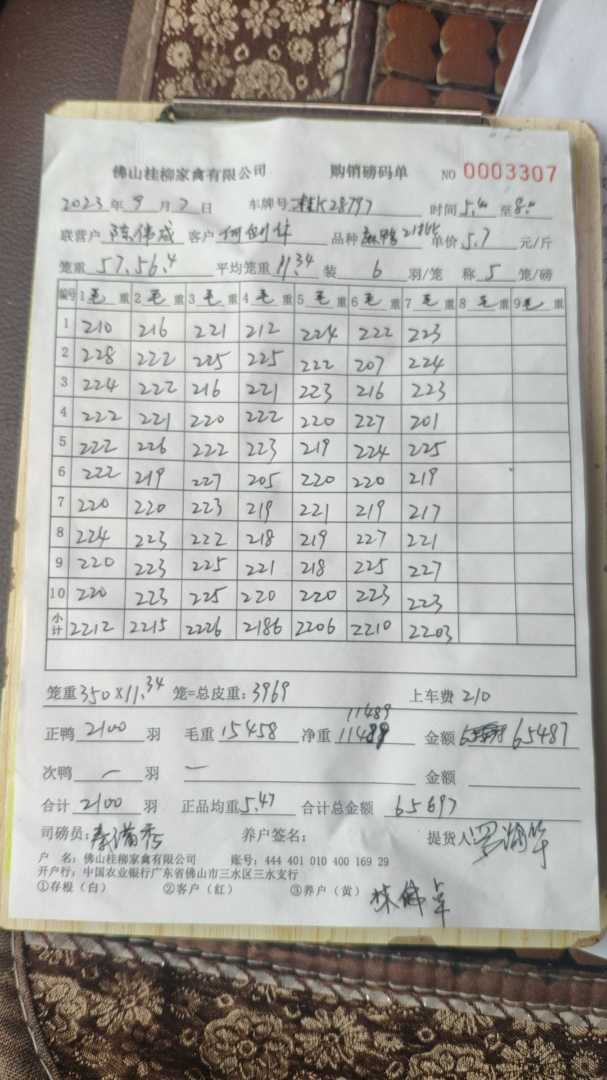 佛山桂柳家禽有限公司 购销磅码单 NO 0003307
2023年9月7日 车牌号:桂K28797 时间5.40至8.
联营户 陈伟成 客户 何创 品种 麻鸭 单价5.7元/斤
笼重57,56.4 平均笼重11.34 装6羽/笼 称5笼/磅
编号 1毛重 2毛重 3毛重 4毛重 5毛重 6毛重 7毛重 8毛重 9毛重
1 210 216 221 212 224 222 223
2 228 222 225 225 222 207 224
3 224 222 216 221 223 216 223
4 222 221 220 222 220 227 201
5 222 226 222 223 219 224 225
6 222 219 227 205 220 220 219
7 220 220 223 219 221 219 217
8 224 223 222 218 219 227 221
9 220 223 225 221 218 225 227
10 220 223 225 220 220 223 223
小计 2212 2215 2226 2186 2206 2210 2203
笼重350×11.34笼=总皮重:3969 上车费210
11489
正鸭2100羽 毛重15458 净重11489 金额65487
次鸭一羽 一 金额
合计2100羽 正品均重5.47 合计总金额65697
司磅员: 养户签名: 提货人:
户 名:佛山桂柳家禽有限公司 账号:444 401 010 400 169 29
开户行:中国农业银行广东省佛山市三水区三水支行
①存根(白) ②客户(红) ③养户(黄)